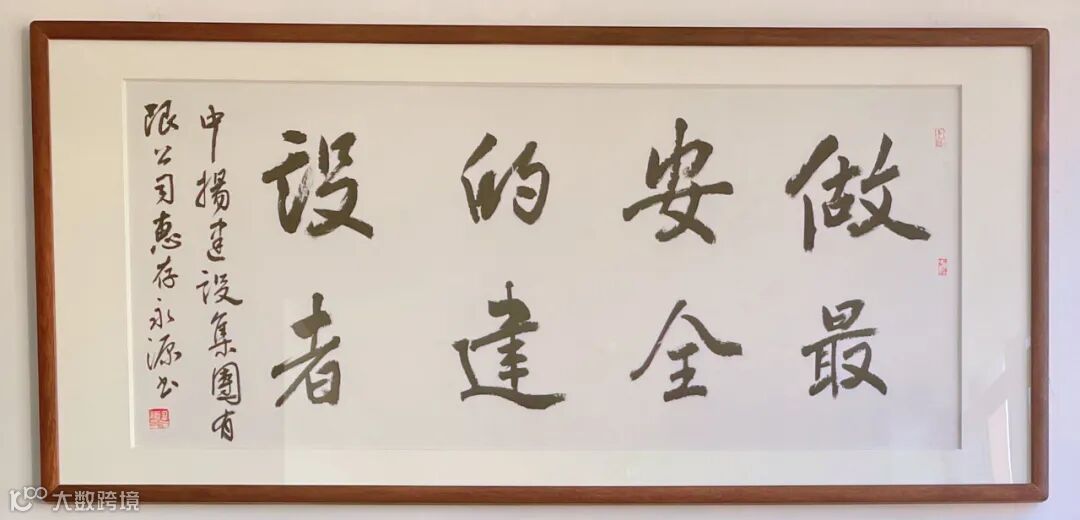 做最
安全
的建
设者
中揚建设集團有
限公司惠存永源书
大数跨境